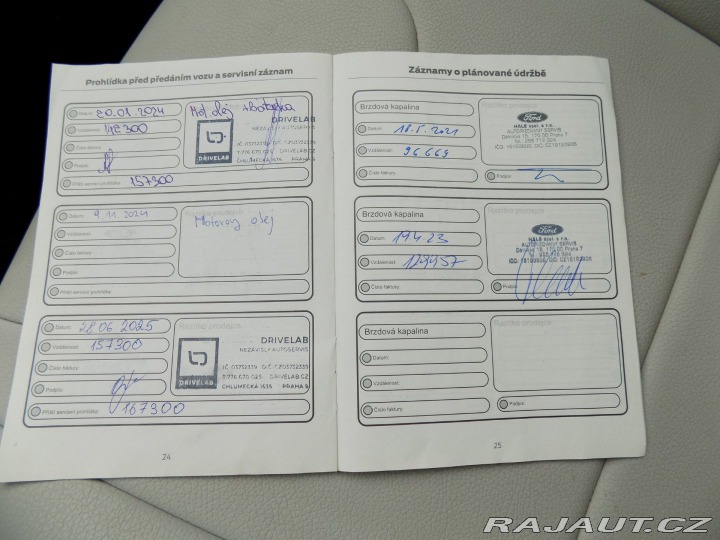 Prohlídka před předáním vozu a servisní záznam
Datum: 20.01.2024
Vzdálenost:
Číslo faktury:
Podpis:
Příští servisní prohlídka: 157300
Mot. olej
DRIVELAB
NEZÁVISLÝ AUTOSERVIS
DRIVELAB
CHLUMECKÁ 1535 PRAHA 9
Datum: 9.11.2024
Vzdálenost:
Číslo faktury:
Podpis:
Příští servisní prohlídka:
Motorový olej
Datum: 28.06.2025
Vzdálenost: 157300
Číslo faktury:
Podpis:
Příští servisní prohlídka: 167300
Razítko prodejce
DRIVELAB
NEZÁVISLÝ AUTOSERVIS
DRIVELAB
PRAHA 9
24
Záznamy o plánované údržbě
Brzdová kapalina
Datum: 18.5.2021
Vzdálenost: 96669
Číslo faktury:
Ford
HALE spol. s r.o.
AUTORIZOVANÝ SERVIS
Podpis:
Brzdová kapalina
Datum: 19.4.23
Vzdálenost:
Číslo faktury:
Razítko prodejce
Ford
HALE spol. s r.o.
AUTORIZOVANÝ SERVIS
Podpis:
Brzdová kapalina
Datum:
Vzdálenost:
Číslo faktury:
Razítko prodejce
Podpis:
25
RAJAUT.CZ